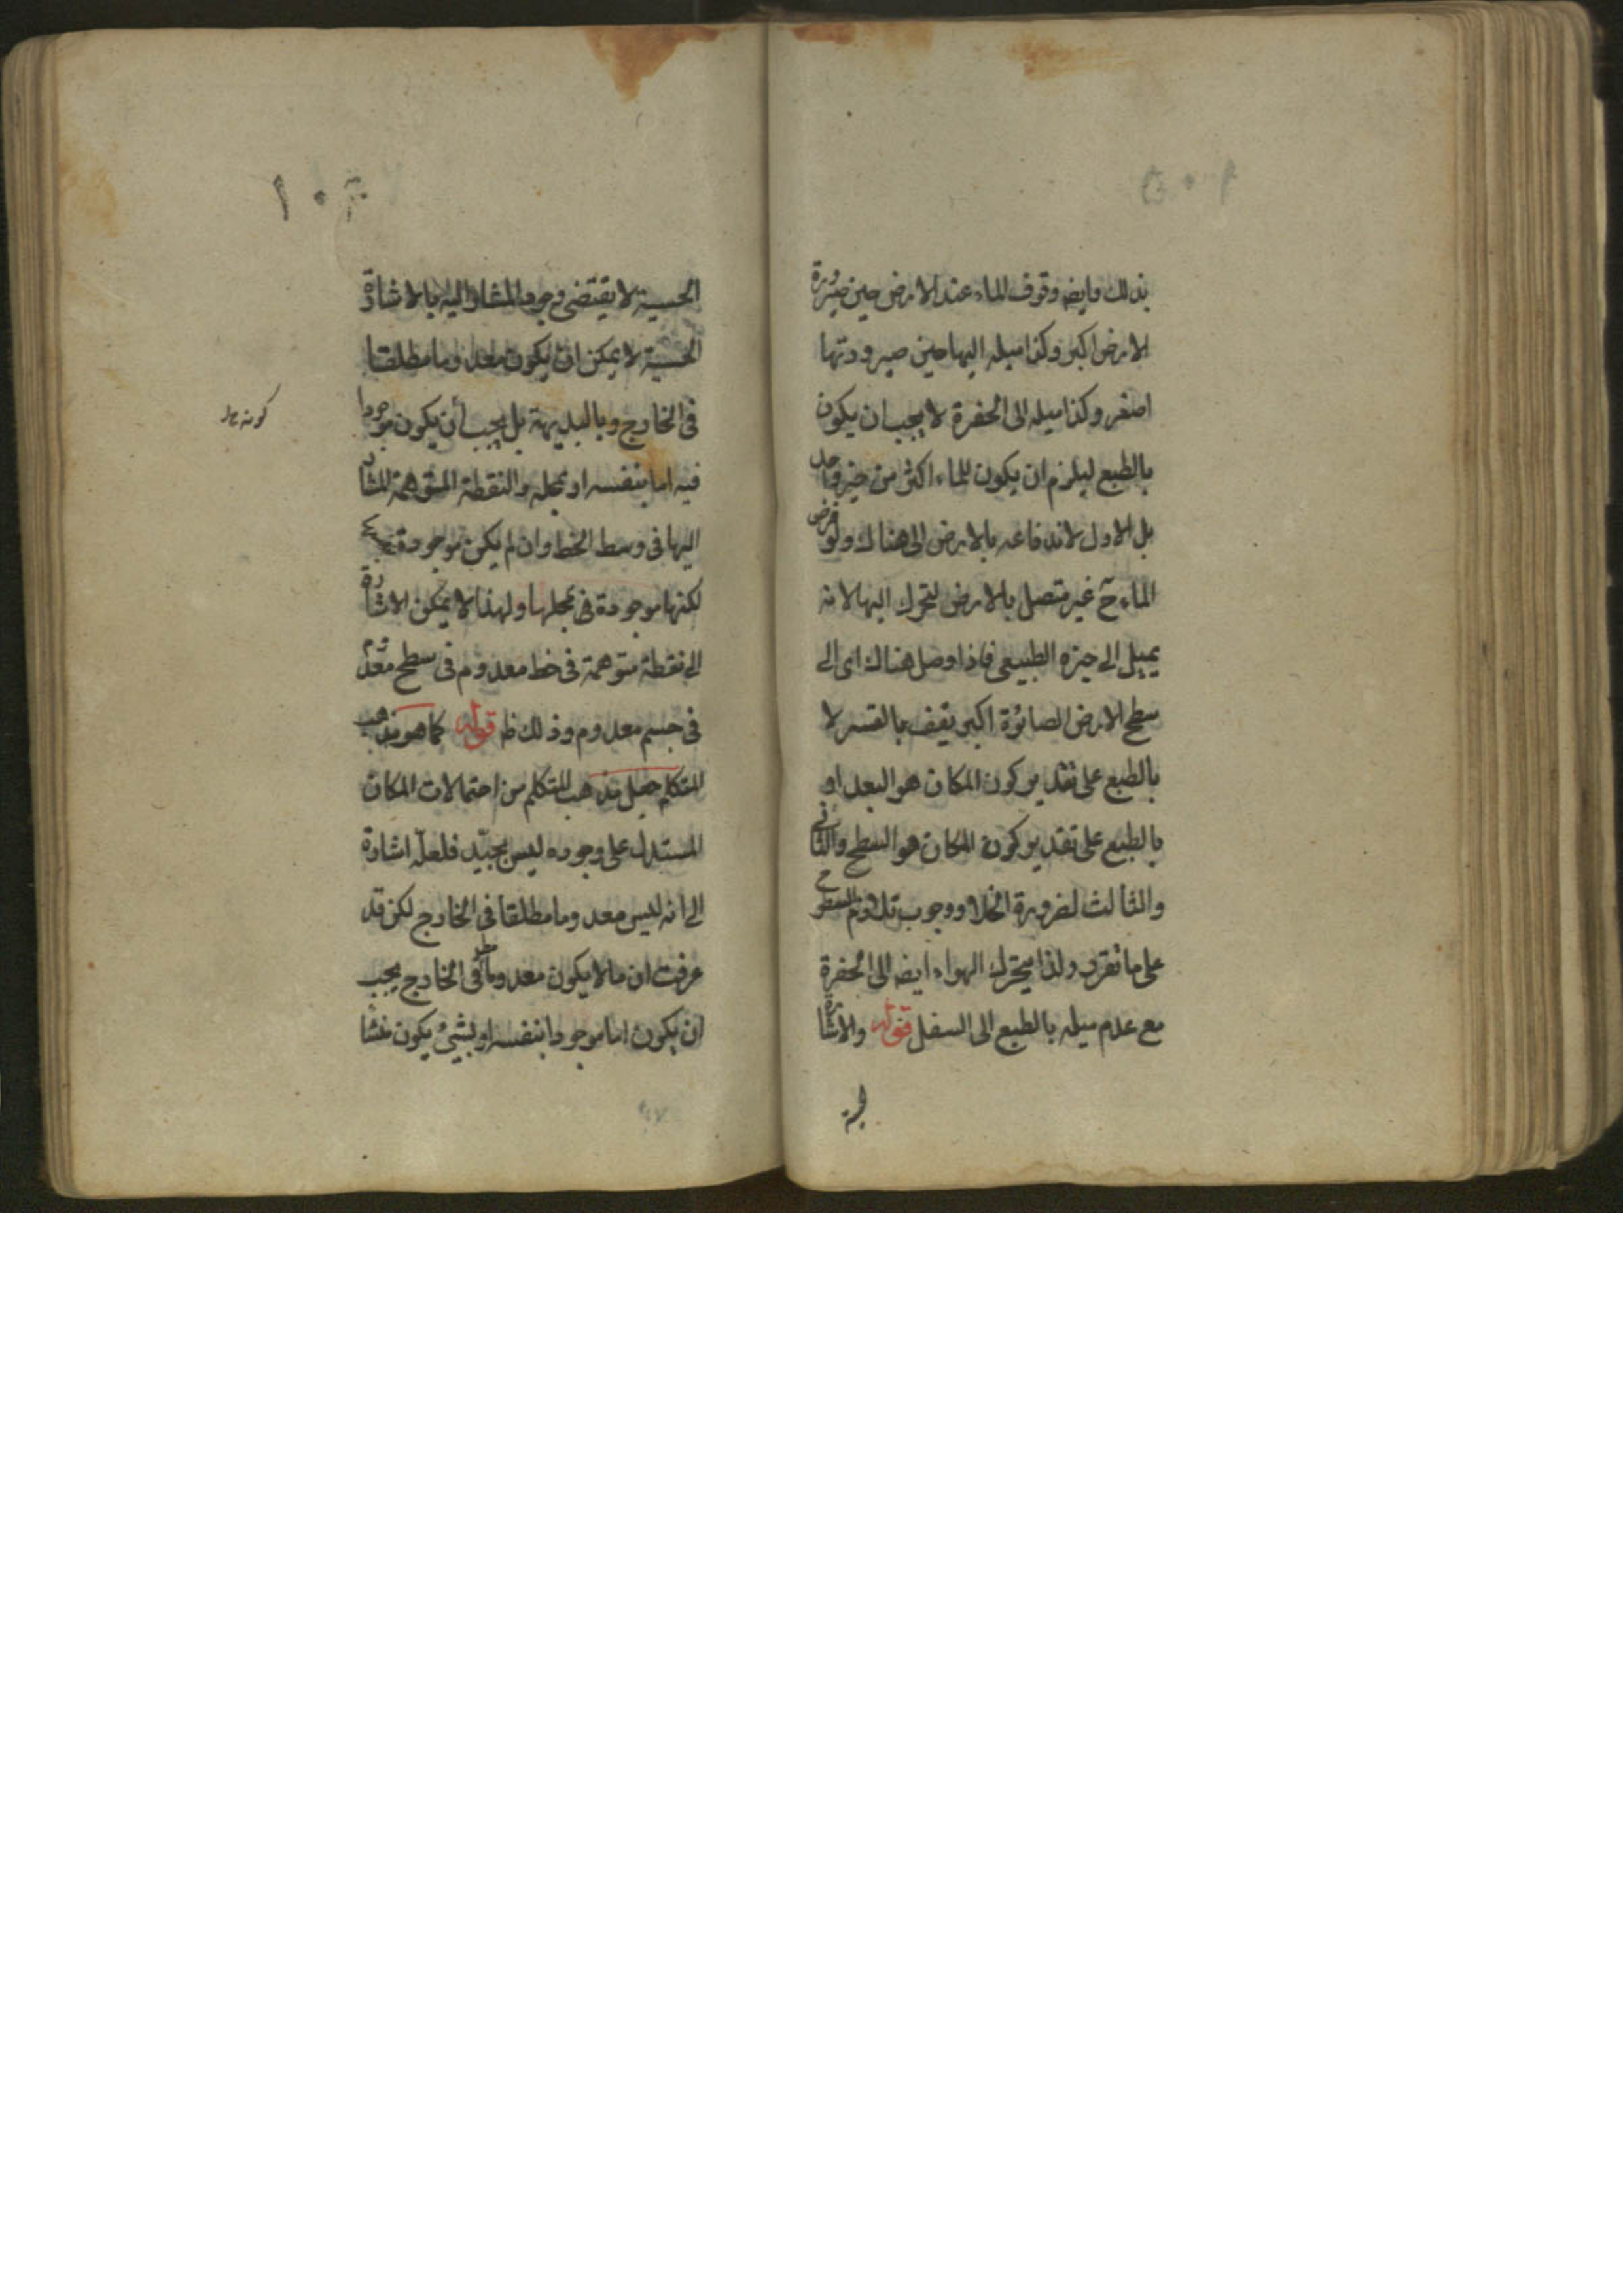 بذلك وايضه وقوف الماء عند الارض حين صيرورة
الارض اكبر وكذا ميله اليها حين صيرورتها
اصغر وكذا ميله الى الحفرة لا يجب ان يكون
بالطبع ليلزم ان يكون للماء اكثر من حيز واحد
بل الاول لاندفاعه بالارض الى هناك ولو فرض
الماء ح غير متصل بالارض لتحرك اليها لانه
يميل الى حيزه الطبيعى فاذا وصل هناك اى الى
سطح الارض الصائرة اكبر يقف بالقسر لا
بالطبع على تقدير كون المكان هو البعد او
بالطبع على تقدير كون المكان هو السطح والثانى
والثالث لضرورة الخلاء ووجوب تلازم السطوح
على ما تقرر ولذا يتحرك الهواء ايضه الى الحفرة
مع عدم ميله بالطبع الى السفل قوله والاشارة
١٠٦
الحسية لا يقتضى وجود المشار اليه بالاشارة
الحسية لا يمكن ان يكون معدوما مطلقا
فى الخارج وبالبديهة بل يجب أن يكون موجودا
فيه اما بنفسه او بمحله والنقطة المتوهمة المشار
اليها فى وسط الخط وان لم يكن موجودة
لكنها موجودة فى محلها ولهذا لا يمكن الاشارة
الى نقطة متوهمة فى خط معدوم فى سطح معدوم
فى جسم معدوم وذلك ظ قوله كما هو مذهب
المتكلم جعل مذهب المتكلم من احتمالات المكان
المستدل على وجوده ليس بجيّد فلعلّه اشارة
الى انه ليس معدوما مطلقا فى الخارج لكن قد
عرفت ان ما لا يكون معدوما فى الخارج يجب
ان يكون اما موجودا بنفسه او بشيئ يكون منشأ